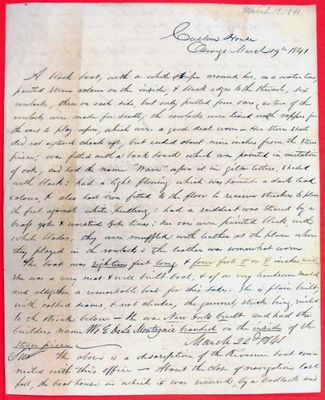 March 19, 1841
Custom House
Oswego March 19th 1841
A black boat, with a white stripe around her, as a water line,
painted straw colour on the inside, & black edges to the thwarts, six
rowlocks, three on each side, but only pulled four oars, as two of the
rowlocks were made for sculls, the rowlocks were lined with copper for
the oars to play upon, which were a good deal worn - Her stern seats
did not extend chock aft, but ended about nine inches from the stern
piece: was fitted with a back board which was painted in imitation
of oak, and had the name upon it in gilt letters, shaded
with black: had a tight flooring which was painted a dark lead
colour, & also had iron fitted to the floor to receive stretchers to place
the feet against while pulling: had a rudder was steered by a
brass yoke & worsted yoke lines: her oars were painted black with
white blades, they were muffled with leather at the place where
they played in the rowlocks & the leather was somewhat worn
The boat was eighteen feet long & four feet 5 or 8 inches wide
she was a very neat & well built boat, & of a very handsome model
and altogether a remarkable boat for this Lake. She is plain built,
with caulked seams, & not clinker, the gunwale streak being
to the streak below - she was New York built and had the
builders name W & E de la Montagnie branded on the inside of the
stern piece.
March 22d 1841
Sir The above is a description of the Revenue boat con-
nected with this office - About the close of navigation last
fall, the boat house in which it was secured by a padlock and